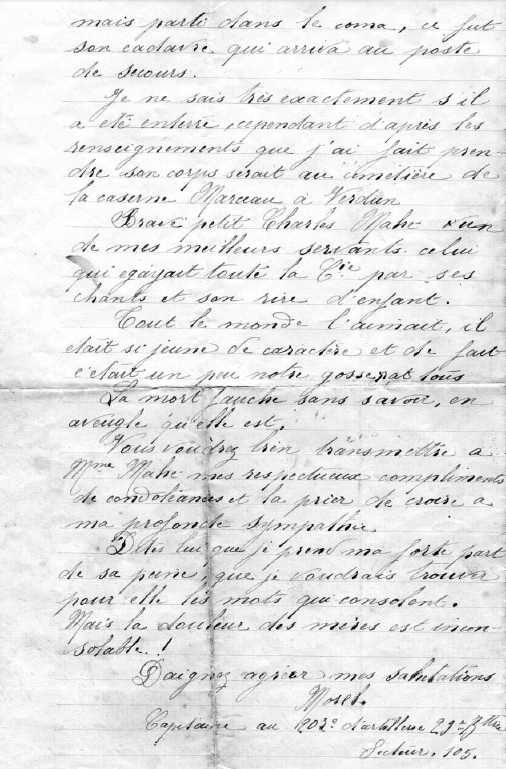 mais parti dans le coma, ce fut
son cadavre qui arriva au poste
de secours.
Je ne sais très exactement s'il
a été enterré, cependant d'après les
renseignements que j'ai fait pren-
dre son corps serait au cimetière de
la caserne Marceau à Verdun
Brave petit Charles Mahé un
de mes meilleurs servants. celui
qui égayait toute la Cie par ses
chants et son rire d'enfant.
Tout le monde l'aimait, il
était si jeune de caractère et de fait
c'était un peu notre gosse à tous
La mort fauche sans savoir, en
aveugle qu'elle est.
Vous voudrez bien transmettre à
Mme Mahé mes respectueux compliments
de condoléances et la prier de croire à
ma profonde sympathie
Dites lui que je prend ma forte part
de sa peine, que je voudrais trouver
pour elle les mots qui consolent.
Mais la douleur des mères est incon-
solable.!
Daignez agréer mes salutations
Morel.
Capitaine au 203e d'artillerie 29e Bttrie
Secteur. 105.